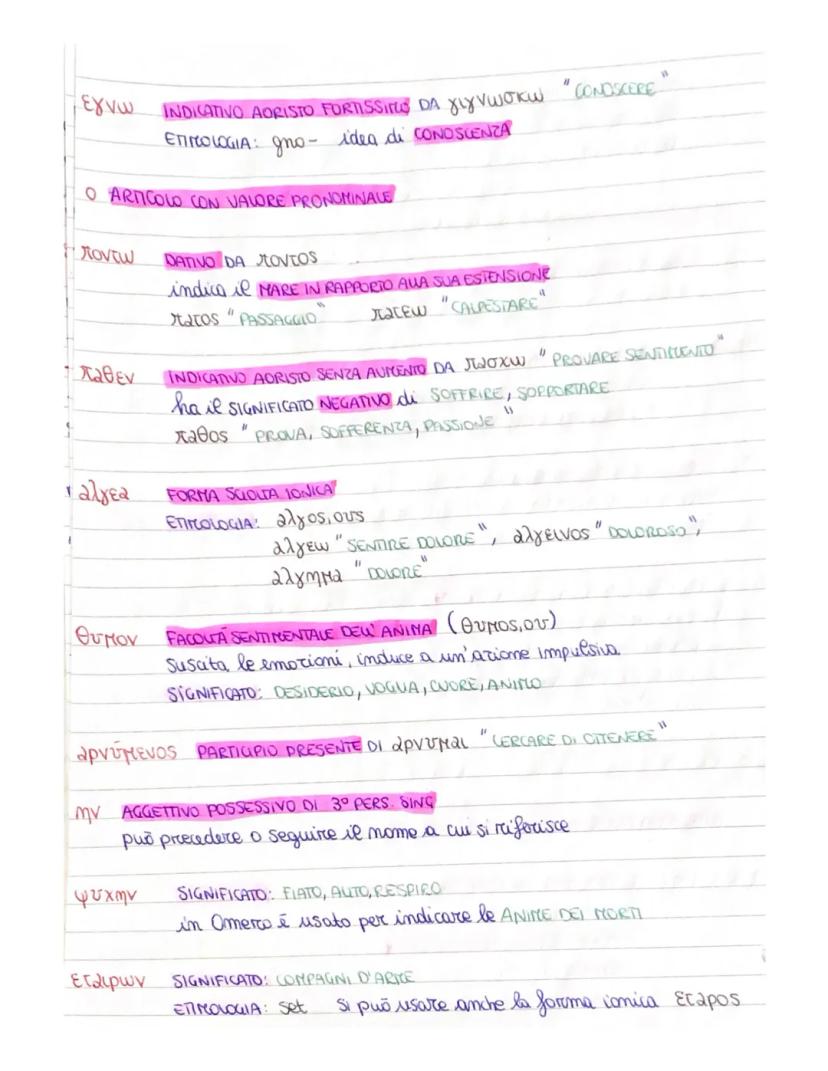 εγνω INDICATIVO AORISTO FORTISSIMO DA γιγνωσκω "CONOSCERE"
ETIMOLOGIA: gno- idea di CONOSCENZA
ο ARTICOLO CON VALORE PRONOMINALE
ποντω DATIVO DA ποντος
indica il MARE IN RAPPORTO ALLA SUA ESTENSIONE
πατος "PASSAGGIO" πατεω "CALPESTARE"
παθεν INDICATIVO AORISTO SENZA AUMENTO DA πασχω "PROVARE SENTIMENTO"
ha il SIGNIFICATO NEGATIVO di SOFFRIRE, SOPPORTARE
παθος "PROVA, SOFFERENZA, PASSIONE"
αλγεα FORMA SCIOLTA IONICA
ETIMOLOGIA: αλγος, ους
αλγεω "SENTIRE DOLORE", αλγεινος "DOLOROSO",
αλγημα "DOLORE"
θυμον FACOLTÀ SENTIMENTALE DELL'ANIMA (θυμος, ου)
suscita le emozioni, induce a un'azione impulsiva
SIGNIFICATO: DESIDERIO, VOGLIA, CUORE, ANIMO
αρνύμενος PARTICIPIO PRESENTE DI αρνυμαι "CERCARE DI OTTENERE"
ην AGGETTIVO POSSESSIVO DI 3° PERS. SING
può precedere o seguire il nome a cui si riferisce
ψυχην SIGNIFICATO: FIATO, ALITO, RESPIRO
in Omero è usato per indicare le ANIME DEI MORTI
εταιρων SIGNIFICATO: COMPAGNI D'ARME
ETIMOLOGIA: set si può usare anche la forma ionica εταρος